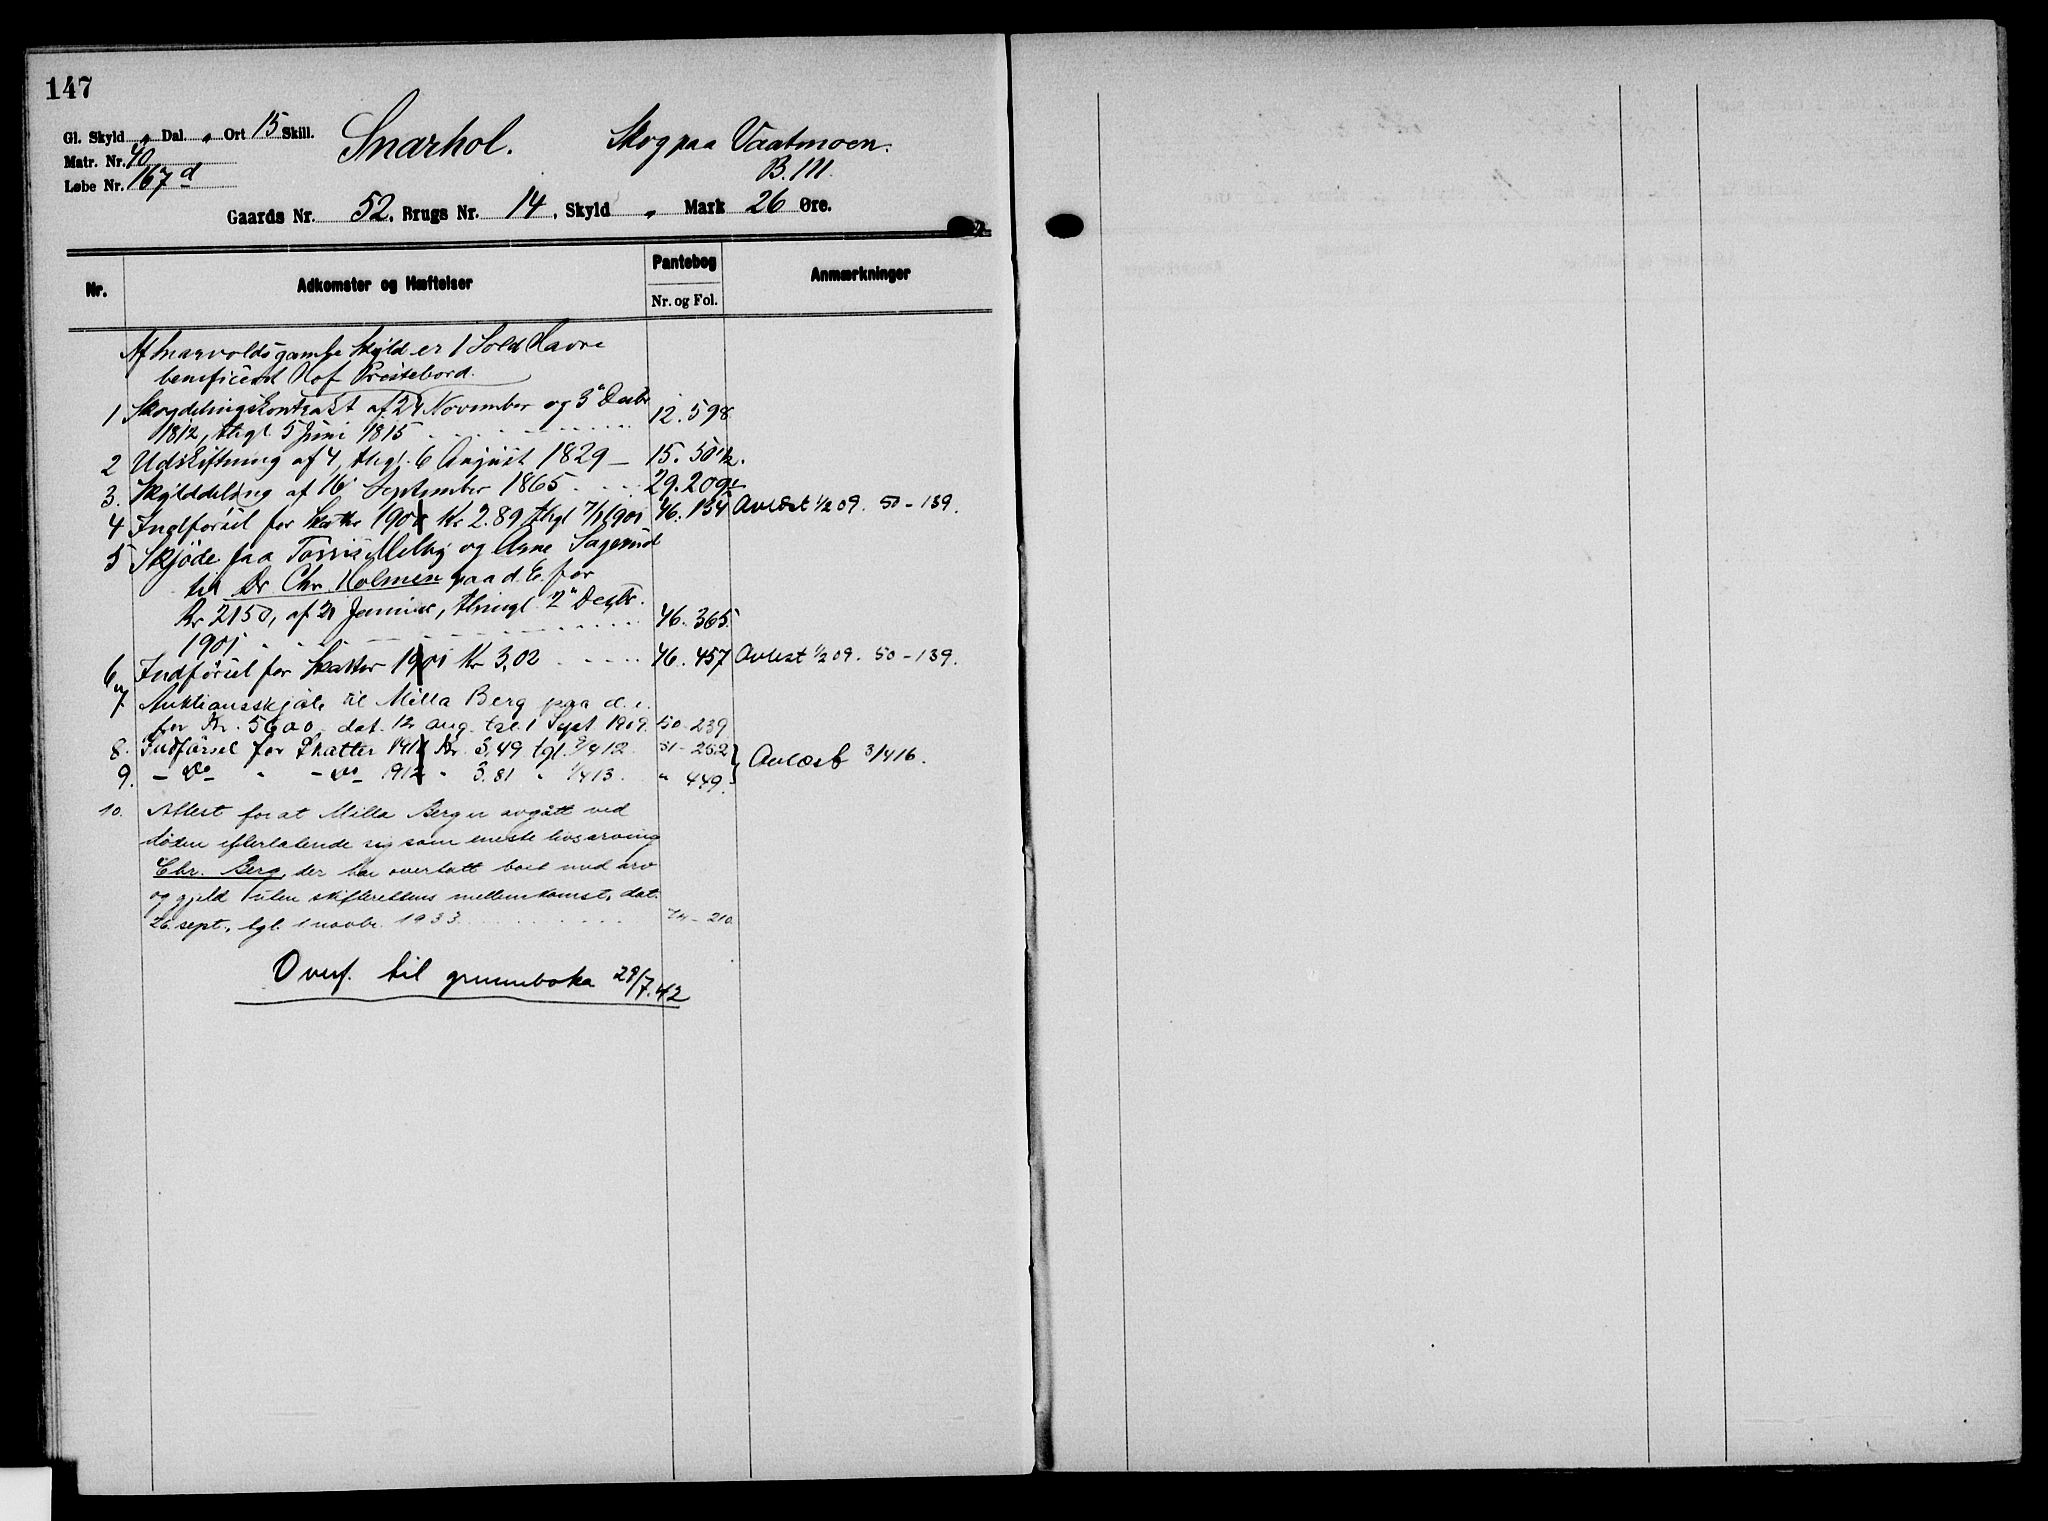 147
Gl. Skyld " Dal. " Ort 15 Skill. Snarhol. Skog paa Vaatmoen.
Matr. Nr. 40 B. 111.
Løbe Nr. 167 d
Gaards Nr. 52, Brugs Nr. 14, Skyld " Mark 26 Øre.
Nr. Adkomster og Hæftelser Pantebog Nr. og Fol. Anmærkninger
Af Snarvolds gamle Skyld er 1 Sold Havre
beneficeret Hof Prestebord.
1 Skogdelingskontrakt af 24 November og 3" Decbr
1812, thgl. 5 Juni 1815 12. 598.
2 Udskiftning af 4, thgl. 6 August 1829 15. 501 1/2.
3. Skylddeling af 16 September 1865 29. 209
4 Indførsel for Skatter 1900 Kr 2.89 thgl 7/1 1901 46. 134 Avlæst 1/2 09. 50-139.
5 Skjøde fra Torris Melby og Arne Sagerud
til Dr Chr. Holmen paa d. E. for
Kr 2150, af 21 Januar, thingl. 2" Decbr.
1901 46. 365.
6 Indførsel for Skatter 1901 Kr 3,02 46. 457 Avlest 1/2 09. 50-139.
7 Auktionsskjøte til Milla Berg paa d. e.
for Kr. 5600, dat. 12 aug. tgl. 1 Sept 1909. 50-239
8. Indførsel for Skatter 1911 Kr. 3,49 tgl. 9/4 12. 51-252 } Avlæst 3/4 16.
9. - Do " - Do - 1912 " 3.81 " 1/4 13. " 449.
10. Attest for at Milla Berg er avgått ved
døden efterlatende sig som eneste livsarving
Chr. Berg, der har overtatt boet med arv
og gjeld uten skifterettens mellemkomst, dat.
26. sept., tgl. 1 novbr. 1933. 74-210.
Overf. til grunnboka 29/7.42